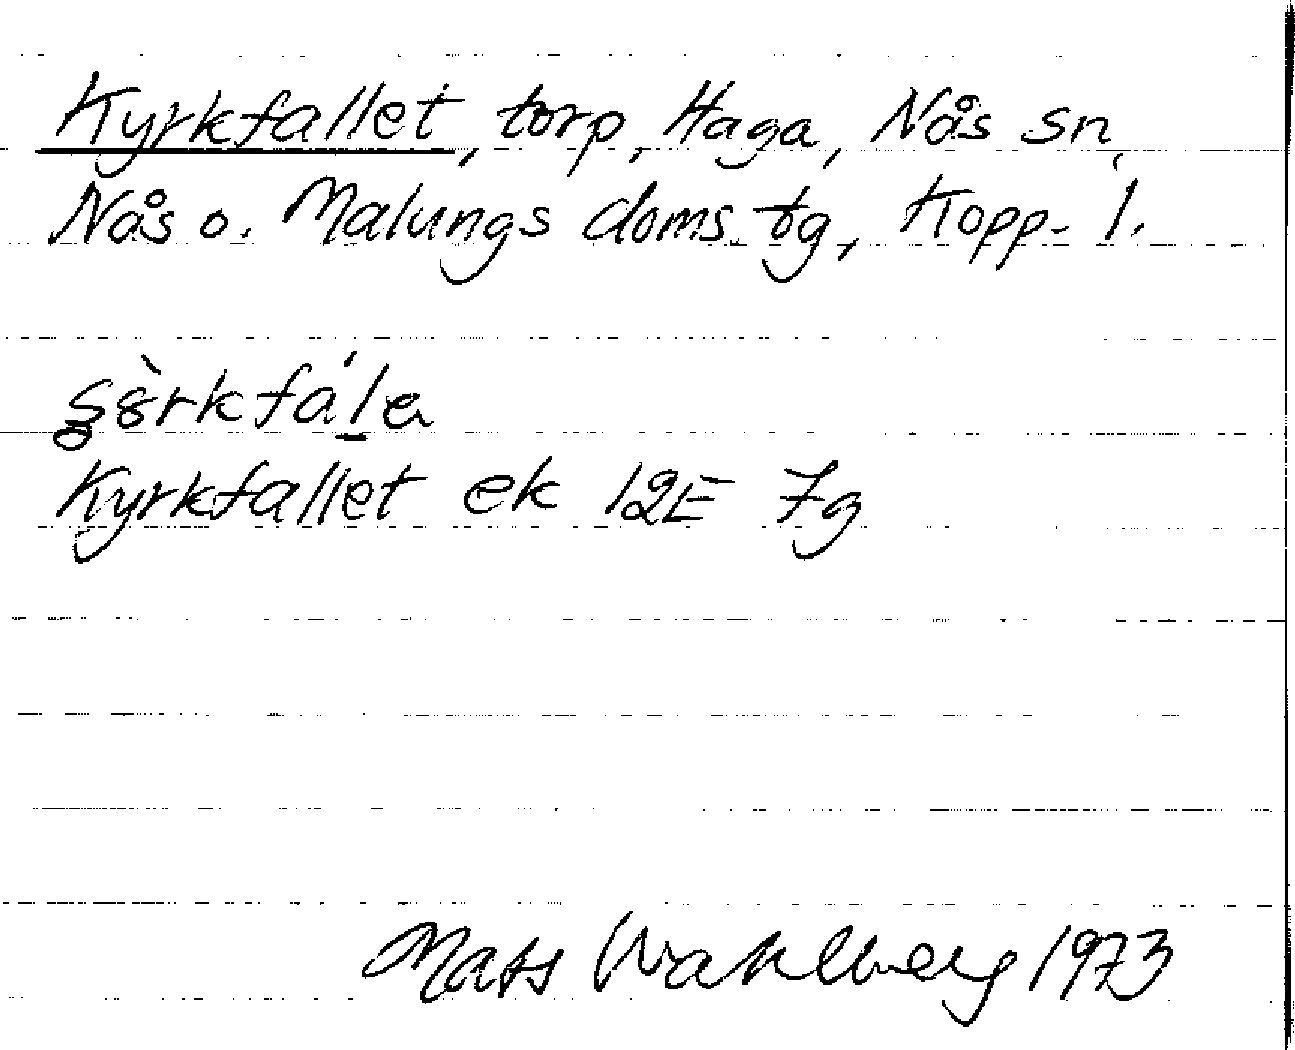 Kyrkfallet, torp, Haga, Nås sn,
Nås o. Malungs doms. tg, Kopp. l.
Kyrkfallet ek 12E 7g
Mats Wahlberg 1973